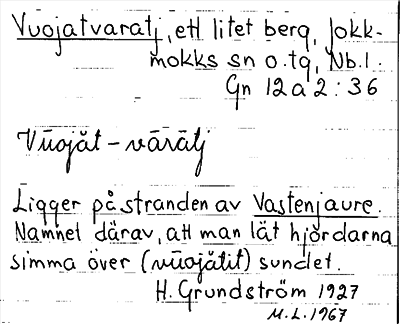 Vuojatvaratj, ett litet berg, Jokk-
mokks sn o. tg, Nb. l.
Gn 12 a 2 : 36
Vūojăt - vārātj
Ligger på stranden av Vastenjaure.
Namnet därav, att man lät hjordarna
simma över (vūojătit) sundet.
H. Grundström 1927
M. L. 1967